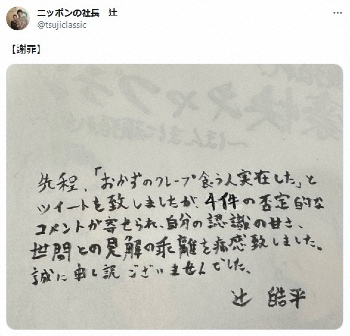 ニッポンの社長　辻
@tsujiclassic
【謝罪】
先程、「おかずのクレープ食う人実在した」と
ツイートを致しましたが、4件の否定的な
コメントが寄せられ、自分の認識の甘さ、
世間との見解の乖離を痛感致しました。
誠に申し訳ございませんでした。
辻　皓平